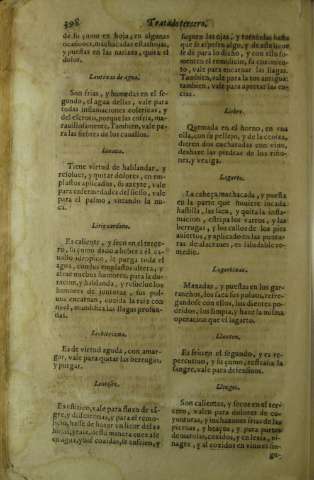 398
Tratado tercero.
de su çumo en hoja, en algunas
ocasiones, machacadas estas hojas,
y puestas en las narizes, quita el
dolor.
Lentejas de agua.
Son frias, y humedas en el se-
gundo, el agua dellas, vale para
todas inflamaciones colericas, y
del escroto, porque las enfria, ma-
rauillosamente, Tambien, vale pa-
ra las fiebres de los cauallos.
Tiene virtud de hablandar, y
resoluer, y quitar dolores, en em-
plastos aplicados, su azeyte, vale
para enfermedades del siesso, vale
para el palmo, untando la nu-
ca.
Es caliente, y seco en el terce-
ro, su çumo dado a beber a el ca-
uallo idropico, le purga toda el
agua, con los emplastos altera, y
atrae muchos humores, para la du-
reza, y hablanda, y resuelue los
humores de junturas, sus pol-
uos encarnan, comida la raiz con
miel, mundifica las llagas profun-
das.
Es de virtud aguda, con amar-
gor, vale para quitar las berrugas,
y purgar.
Es estitico, vale para fluxo de sã-
gre, y disenterias, y para el
hojas
en agua, y assi cozidas, se enfrien, y
saquen las ojas, y
que
de para lo dicho, y con ello fo-
menten el remolido, su cozimien-
to, vale para encarnar las llagas.
Tambien, vale para la tos antigua:
tambien, vale para apretar las en-
cias.
Liebre.
Quemada en el horno, en una
olla, con su pellejo, y de la ceniza,
dieren dos cucharadas con vino,
deshaze las piedras de los riño-
nes, y bexiga.
Lagarto.
La cabeça machacada, y puesta
en la parte que huuiere incada
hastilla, las saca, y quita la infla-
macion, estirpa los varros, y las
berrugas, y los callos de los pies
abiertos, y aplicado en las puntu-
ras de alacranes, es saludable re-
medio.
Lagartixas.
Majadas, y puestas en los gar-
ranchos, los saca sus poluos, refre-
gandose con ellos, los dientes po-
dridos, los limpia, y haze la misma
operacion que el lagarto.
Llanten.
Es frio en el segundo, y es re-
percusiuo, y su çumo, restaña la
sangre, vale para defensiuos.
Son calientes, y secos en el ter-
cero, valen para dolores de co-
yunturas, y inchazones frias de las
piernas, y braços, y para partos
cozidos, y en lexia,
nages, y si cozidos en vinos